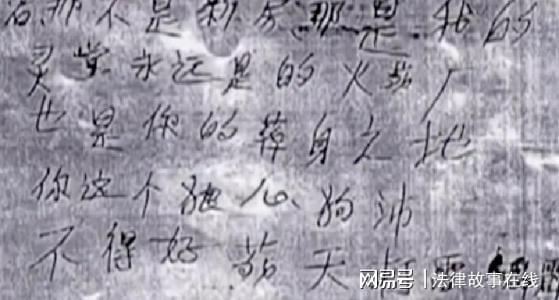 那不是新房那是我的
灵堂永远是的火葬厂
也是你的葬身之地
你这个狼心狗沛
不得好葬天打雷
网易号 | 法律故事在线